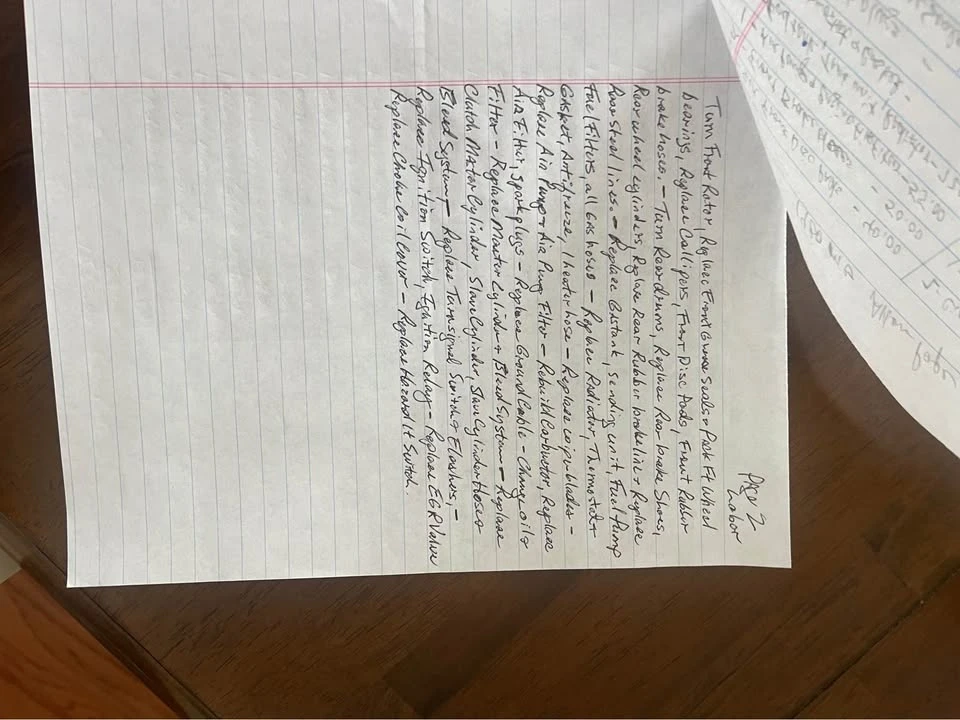 Pg 2
Labor
Turn Front Rotor, Replace Front Grease Seals & Pack Ft Wheel
bearings, Replace Callipers Front Disc Pads, Front Rubber
brake hoses. - Turn Rear drums, Replace Rear brake Shoes,
Rear wheel cylinders, Replace Rear Rubber brake line & Replace
Rear Steel lines. - Replace Gastank, sending unit, Fuel Pump
Fuel Filters, all Gas hoses - Replace Radiator, Thermostat &
Gasket, Antifreeze, 1 heater hose - Replace wiper blades -
Replace Air Pump & Air Pump Filter - Rebuild Carbuetor, Replace
Air Filter, Sparkplugs - Replace Ground Cable - Change oil &
Filter - Replace Master Cylinder & Bleed System - Replace
Clutch Mater Cylinder, Slave Cylinder, Slave Cylinder Hoses &
Bleed System - Replace Turnsignal Switch & Flasher, -
Replace Ignition Switch, Ignition Relay - Replace EGR Valve
Replace Choke Coil Cover - Replace Hazard Lt Switch.